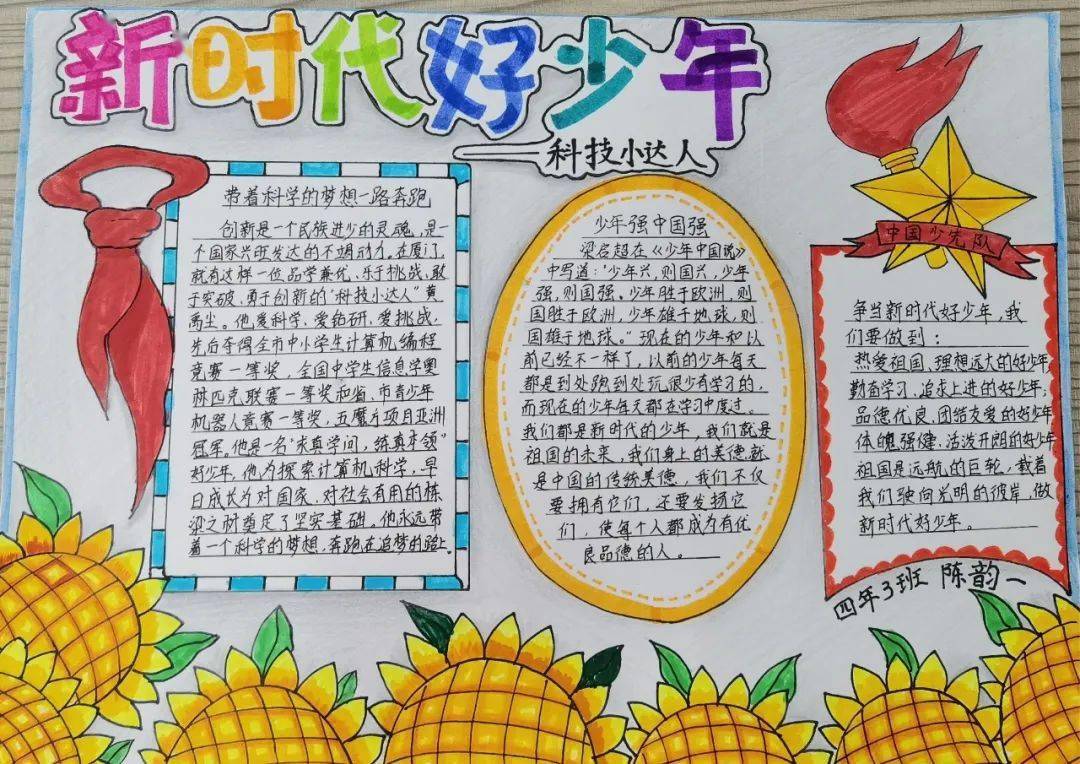 新时代好少年
科技小达人
带着科学的梦想一路奔跑
创新是一个民族进步的灵魂,是
一个国家兴旺发达的不竭动力。在厦门,
就有这样一位品学兼优、乐于挑战、敢
于突破、勇于创新的“科技小达人”黄
禹尘。他爱科学、爱钻研、爱挑战,
先后夺得全市中小学生计算机编程
竞赛一等奖,全国中学生信息学奥
林匹克联赛一等奖和省、市青少年
机器人竞赛一等奖,五魔方项目亚洲
冠军。他是一名“求真学问,练真本领”
好少年。他为探索计算机科学,早
日成长为对国家、对社会有用的栋
梁之材奠定了坚实基础。他永远带
着一个科学的梦想,奔跑在追梦的路上。
少年强中国强
梁启超在《少年中国说》
中写道:“少年兴,则国兴,少年
强,则国强。少年胜于欧洲,则
国胜于欧洲,少年雄于地球,则
国雄于地球。”现在的少年和以
前已经不一样了,以前的少年每天
都是到处跑到处玩,很少有学习的,
而现在的少年每天都在学习中度过。
我们都是新时代的少年,我们就是
祖国的未来,我们身上的美德,就
是中国的传统美德,我们不仅
要拥有它们,还要发扬它
们,使每个人都成为有优
良品德的人。
中国少先队
争当新时代好少年,我
们要做到:
热爱祖国、理想远大的好少年
勤奋学习、追求上进的好少年;
品德优良、团结友爱的好少年
体魄强健、活泼开朗的好少年
祖国是远航的巨轮,载着
我们驶向光明的彼岸,做
新时代好少年。
四年3班 陈韵一